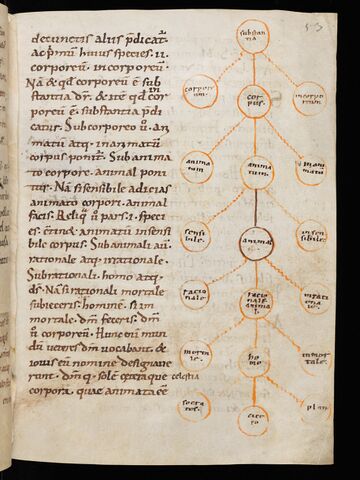 53
de cunctis aliis p̄dicat̄
ac p̄mū huius species · ii ·
corporeū · incorporeū ·
Nā & qd̄ corporeū ē sub
stantia dr̄ · & itē qd̄ incor
poreū ē · substantia p̄di
catur · Sub corporeo ū · ani
matū atq; inanimatū
corpus ponit̄ · Sub anima
to corpore · animal poni
tur · Nā si sensibile adicias
animato corpori · animal
facis · Reliq̄ ū pars · i · speci
es · c̄tin& animatū insensi
bile corpus · Sub animali aū ·
rationale atq; irrationale ·
Sub rationali · homo atq;
d̄s · Nā si rationali mortale
subieceris · hominē · si im
mortale · dm̄ feceris · dm̄
ū corporeū · Hunc enī mun
dū veteres dm̄ vocabant · &
iovis eū nomine designave
runt · dm̄q; solē c&eraque celestia
corpora · quae animata ēē
substan
tia
corpore
um ·
cor
pus ·
incorpo
reum ·
anima
tum
anima
tum ·
inanima
tum
sensi
bile ·
animal
insen
sibile ·
racio
nale ·
racio
nale
animal ·
inracio
nale ·
mortale ·
ho
mo
inmor
tale ·
socra
tes ·
cicero
plato